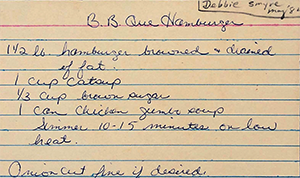 Debbie
may '81
B.B. Que Hamburger
1 1/2 lb. hamburger browned & drained
of fat.
1 cup catsup
1/3 cup brown sugar
1 can chicken gumbo soup
Simmer 10-15 minutes on low
heat.
Onion cut fine if desired.